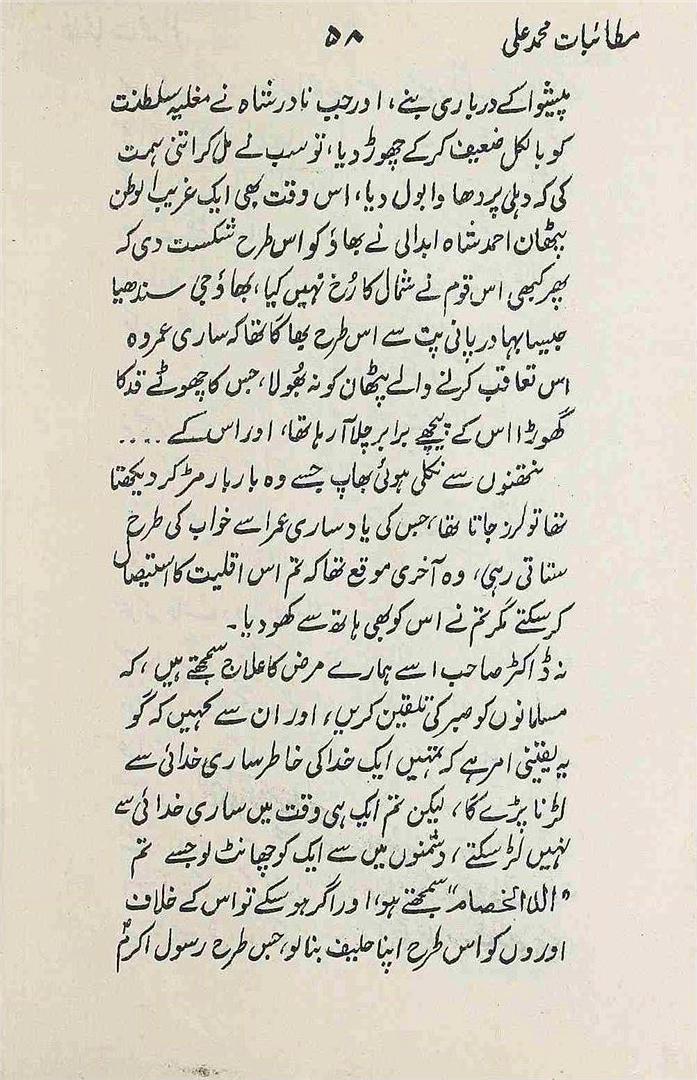 مطائبات محمد علی
۵۸
پیشوا کے درباری بنے، اور جب نادر شاہ نے مغلیہ سلطنت
کو بالکل ضعیف کر کے چھوڑ دیا، تو سب نے مل کر اتنی ہمت
کی کہ دہلی پر دھاوا بول دیا، اس وقت بھی ایک غریب الوطن
پٹھان احمد شاہ ابدالی نے بھاؤ کو اس طرح شکست دی کہ
پھر کبھی اس قوم نے شمال کا رُخ نہیں کیا، بھاؤجی سندھیا
جیسا بہادر پانی پت سے اس طرح بھاگا تھا کہ ساری عمر وہ
اس تعاقب کرنے والے پٹھان کو نہ بھُولا، جس کا چھوٹے قد کا
گھوڑا اس کے پیچھے برابر چلا آ رہا تھا، اور اس کے ....
نتھنوں سے نکلی ہوئی بھاپ جسے وہ بار بار مڑ کر دیکھتا
تھا تو لرز جاتا تھا، جس کی یاد ساری عمر اسے خواب کی طرح
ستاتی رہی، وہ آخری موقع تھا کہ تم اس اقلیت کا استیصال
کر سکتے مگر تم نے اس کو بھی ہاتھ سے کھو دیا۔
نہ ڈاکٹر صاحب اسے ہمارے مرض کا علاج سمجھتے ہیں، کہ
مسلمانوں کو صبر کی تلقین کریں، اور ان سے کہیں کہ گو
یہ یقینی امر ہے کہ تمہیں ایک خدا کی خاطر ساری خدائی سے
لڑنا پڑے گا، لیکن تم ایک ہی وقت میں ساری خدائی سے
نہیں لڑ سکتے، دشمنوں میں سے ایک کو چھانٹ لو جسے تم
"الدالخصام" سمجھتے ہو، اور اگر ہو سکے تو اس کے خلاف
اوروں کو اس طرح اپنا حلیف بنا لو، جس طرح رسول اکرمؐ